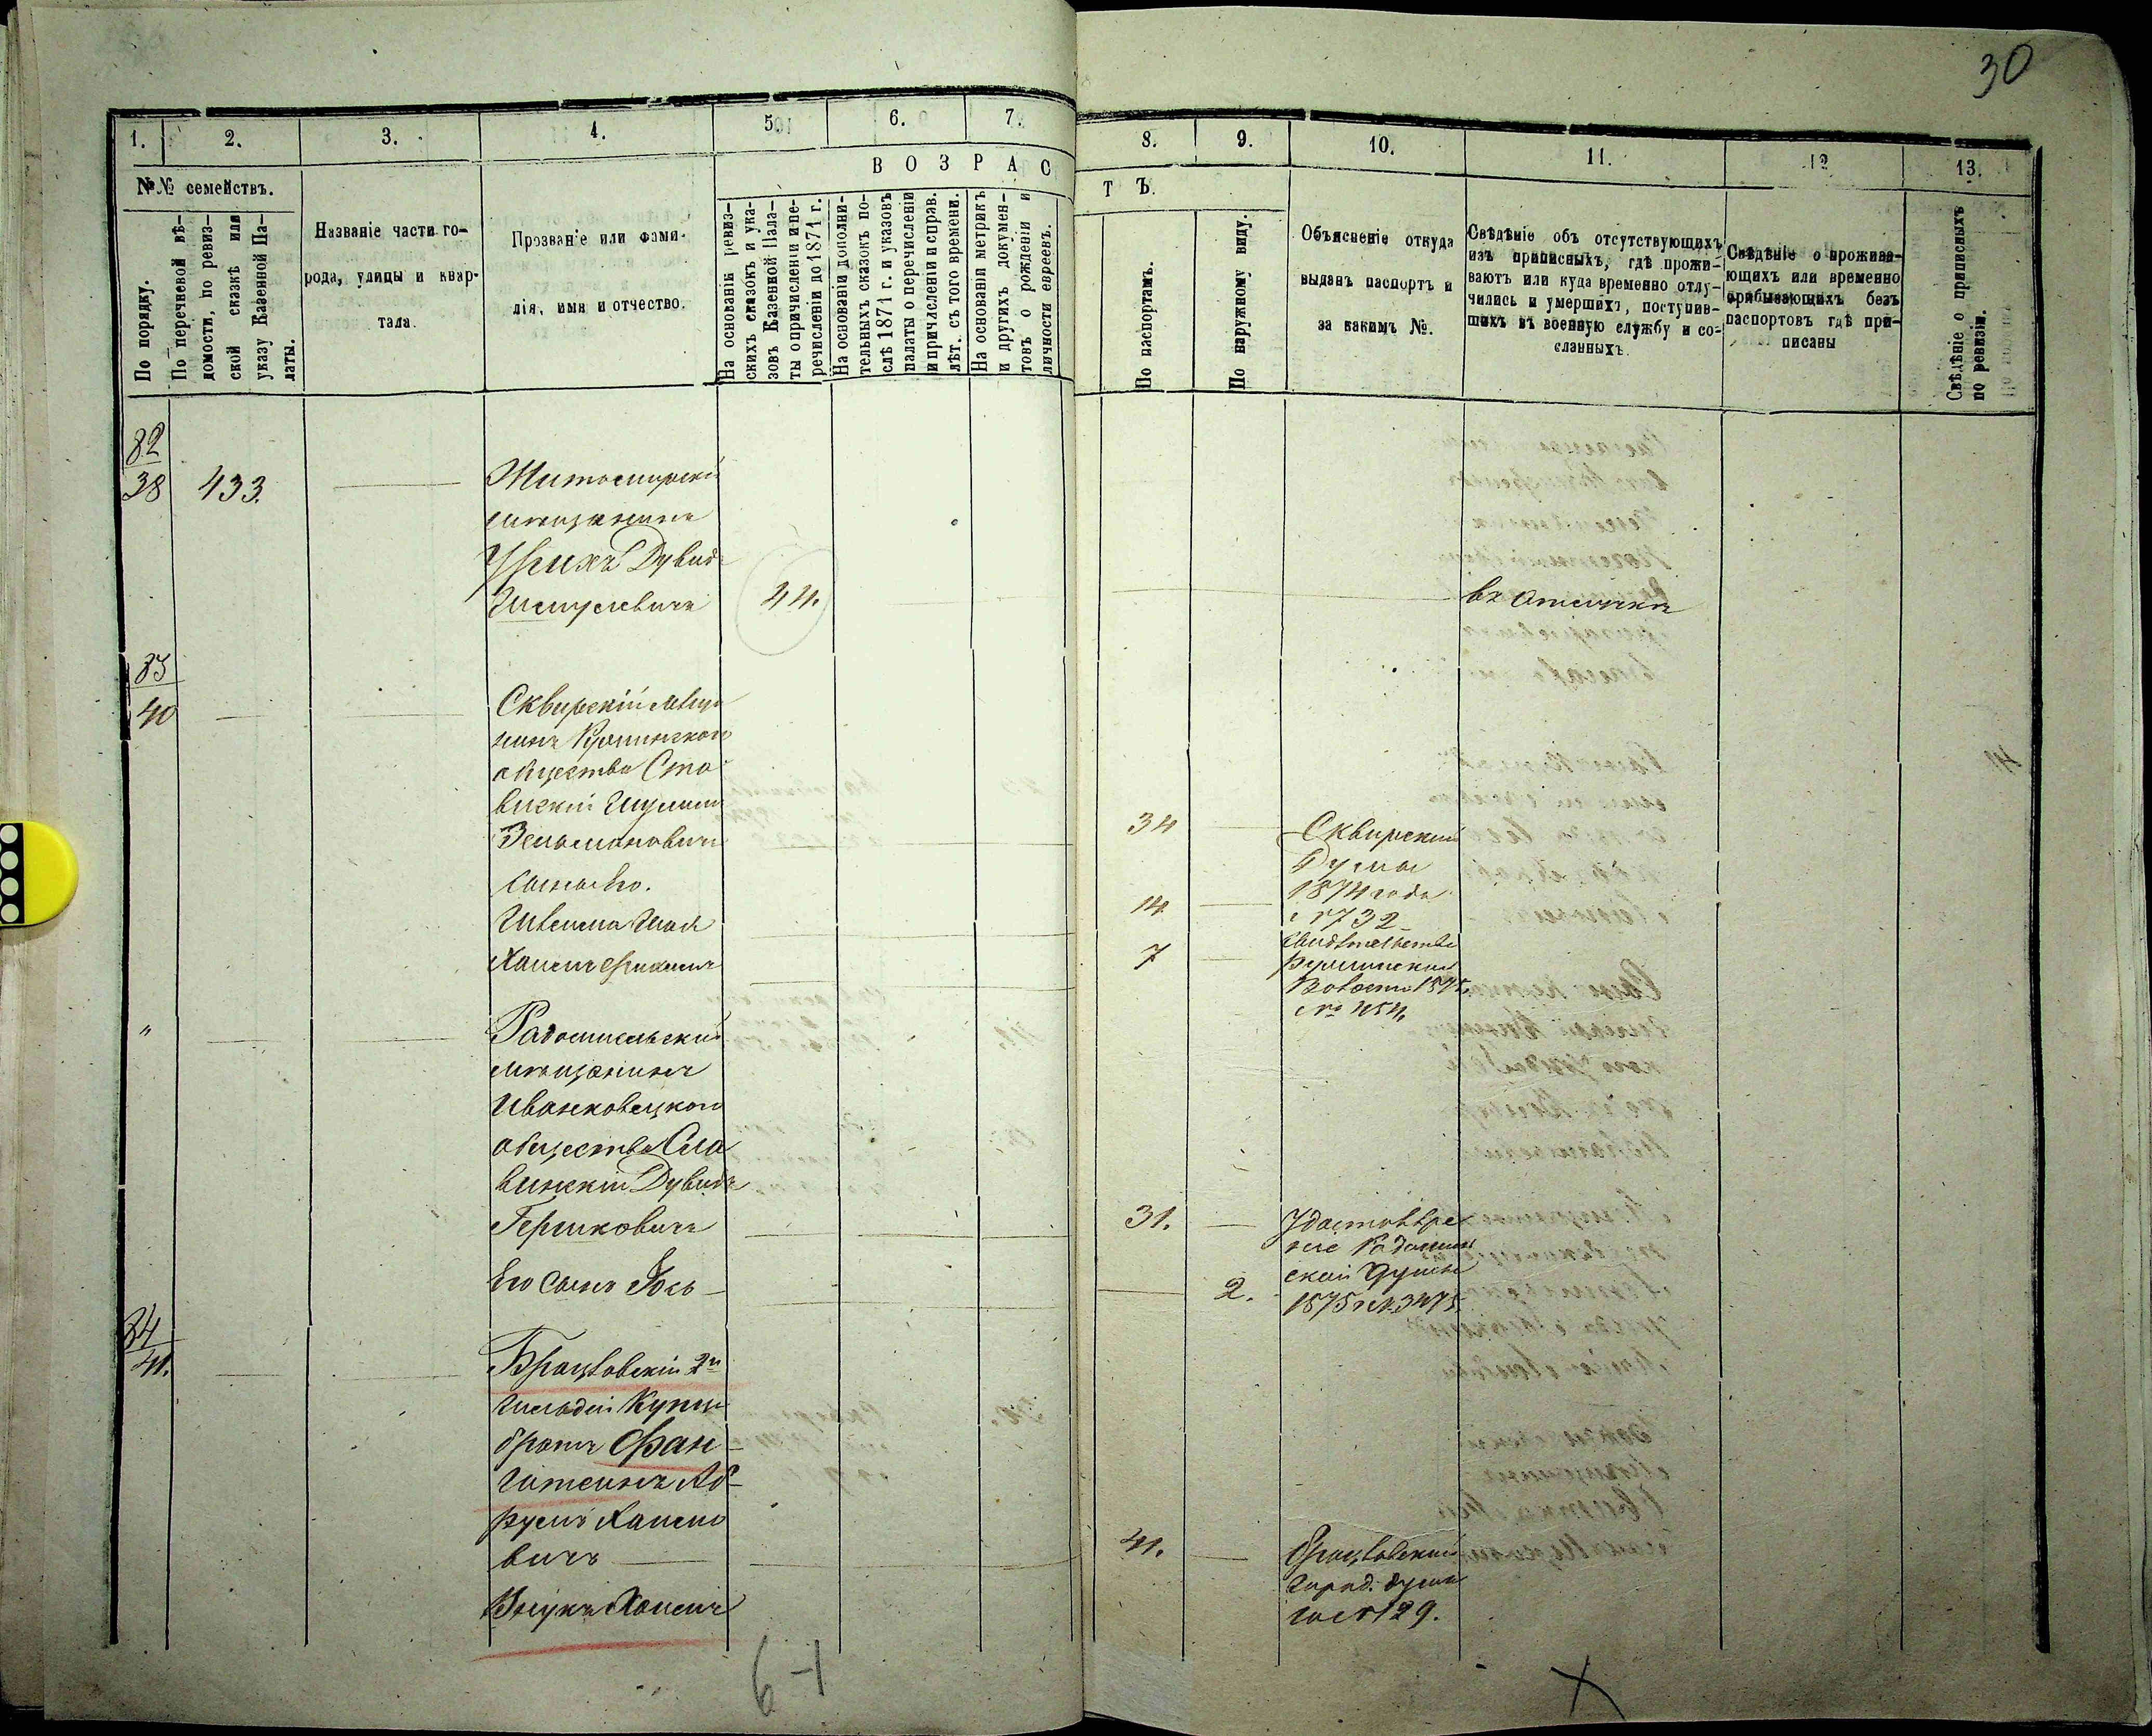 30
1. 2. 3. 4. 5. 6. 7.
8. 9. 10. 11. 12 13.
№№ семействъ.
В О З Р А С
Т Ъ.
По порядку.
По перечневой вѣ-
домости, по ревиз-
ской сказкѣ или
указу Казенной Па-
латы.
Названіе части го-
рода, улицы и квар-
тала.
Прозваніе или фами-
лія, имя и отчество.
На основаніи ревиз-
скихъ сказокъ и ука-
зовъ Казенной Пала-
ты о причисленіи и пе-
речисленіи до 1871 г.
На основаніи дополни-
тельныхъ сказокъ по-
слѣ 1871 г. и указовъ
палаты о перечисленіи
и причисленіи и справ.
лѣт. съ того времени.
На основаніи метрикъ
и другихъ докумен-
товъ о рожденіи и
личности евреевъ.
По паспортамъ.
По наружному виду.
Объясненіе откуда
выданъ паспортъ и
за какимъ №.
Свѣдѣніе объ отсутствующихъ
изъ приписныхъ, гдѣ прожи-
ваютъ или куда временно отлу-
чились и умершихъ, поступив-
шихъ въ военную службу и со-
сланныхъ.
Свѣдѣніе о прожива-
ющихъ или временно
прибывающихъ безъ
паспортовъ гдѣ при-
писаны
Свѣдѣніе о приписныхъ
по ревизіи.
82
38 433. Житомирскій
мѣщанинъ
Дувидъ
Шмулевичъ 44. въ отлучкѣ
83
40 Сквирскій мѣща
нинъ
общества Ста
вискій
Зельмановичъ 34 Сквирский
Сыновья его. Думы
1874 года
14 № 732
Хаимъ 7 Свидѣтельство
Волости 1875
№ 454
" Радомысльскій
мѣщанинъ
Иванковецкого
общества Сла
винскій Дувидъ
Гершковичъ 31. Удостовѣре
ніе Радомысл
Его сынъ Іось 2. ской Думы
1875 г. № 3475
84
41. Брацлавскій 2й
гильдіи Купец
братъ Фан
штейнъ Аб
румъ Хаимо
вичъ 41. Брацлавский
город. дума
Внукъ Хаимъ за № 129.
6-1